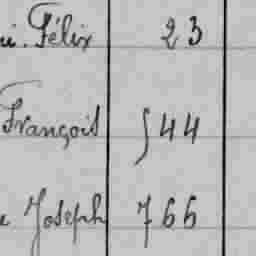 ui. Félix 23
François 544
e Joseph 766